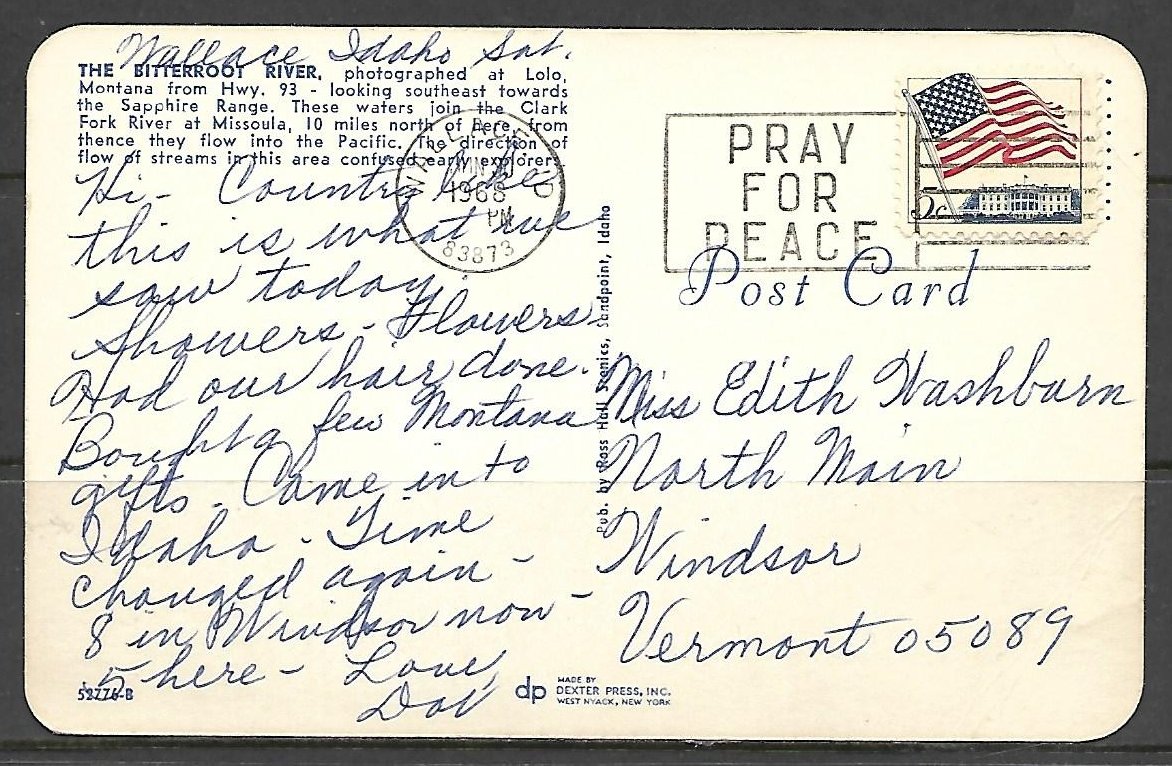 Wallace Idaho Sat.
THE BITTERROOT RIVER, photographed at Lolo,
Montana from Hwy. 93 - looking southeast towards
the Sapphire Range. These waters join the Clark
Fork River at Missoula, 10 miles north of here, from
thence they flow into the Pacific. The direction of
flow of streams in this area confused early explorers
Hi - Country like
this is what we
saw today.
Showers - Flowers
Had our hair done.
Bought a few Montana
gifts - Came into
Idaho - Time
changed again -
8 in Windsor now -
5 here - Love,
Dot
52776-B
WALLACE, ID
1968
PM
83873
PRAY
FOR
PEACE
6c
Post Card
Pub. by Ross Hall Scenics, Sandpoint, Idaho
Miss Edith Washburn
North Main
Windsor
Vermont 05089
dp
MADE BY
DEXTER PRESS, INC.
WEST NYACK, NEW YORK